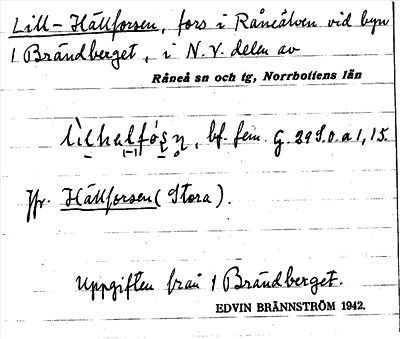 Lill-Hällforsen, fors i Råneälven vid byn
1 Brändberget, i N.V. delen av
Råneå sn och tg, Norrbottens län
bf. fem. G. 29 S.
Jfr. Hällforsen (Stora).
Uppgiften från 1 Brändberget.
EDVIN BRÄNNSTRÖM 1942.